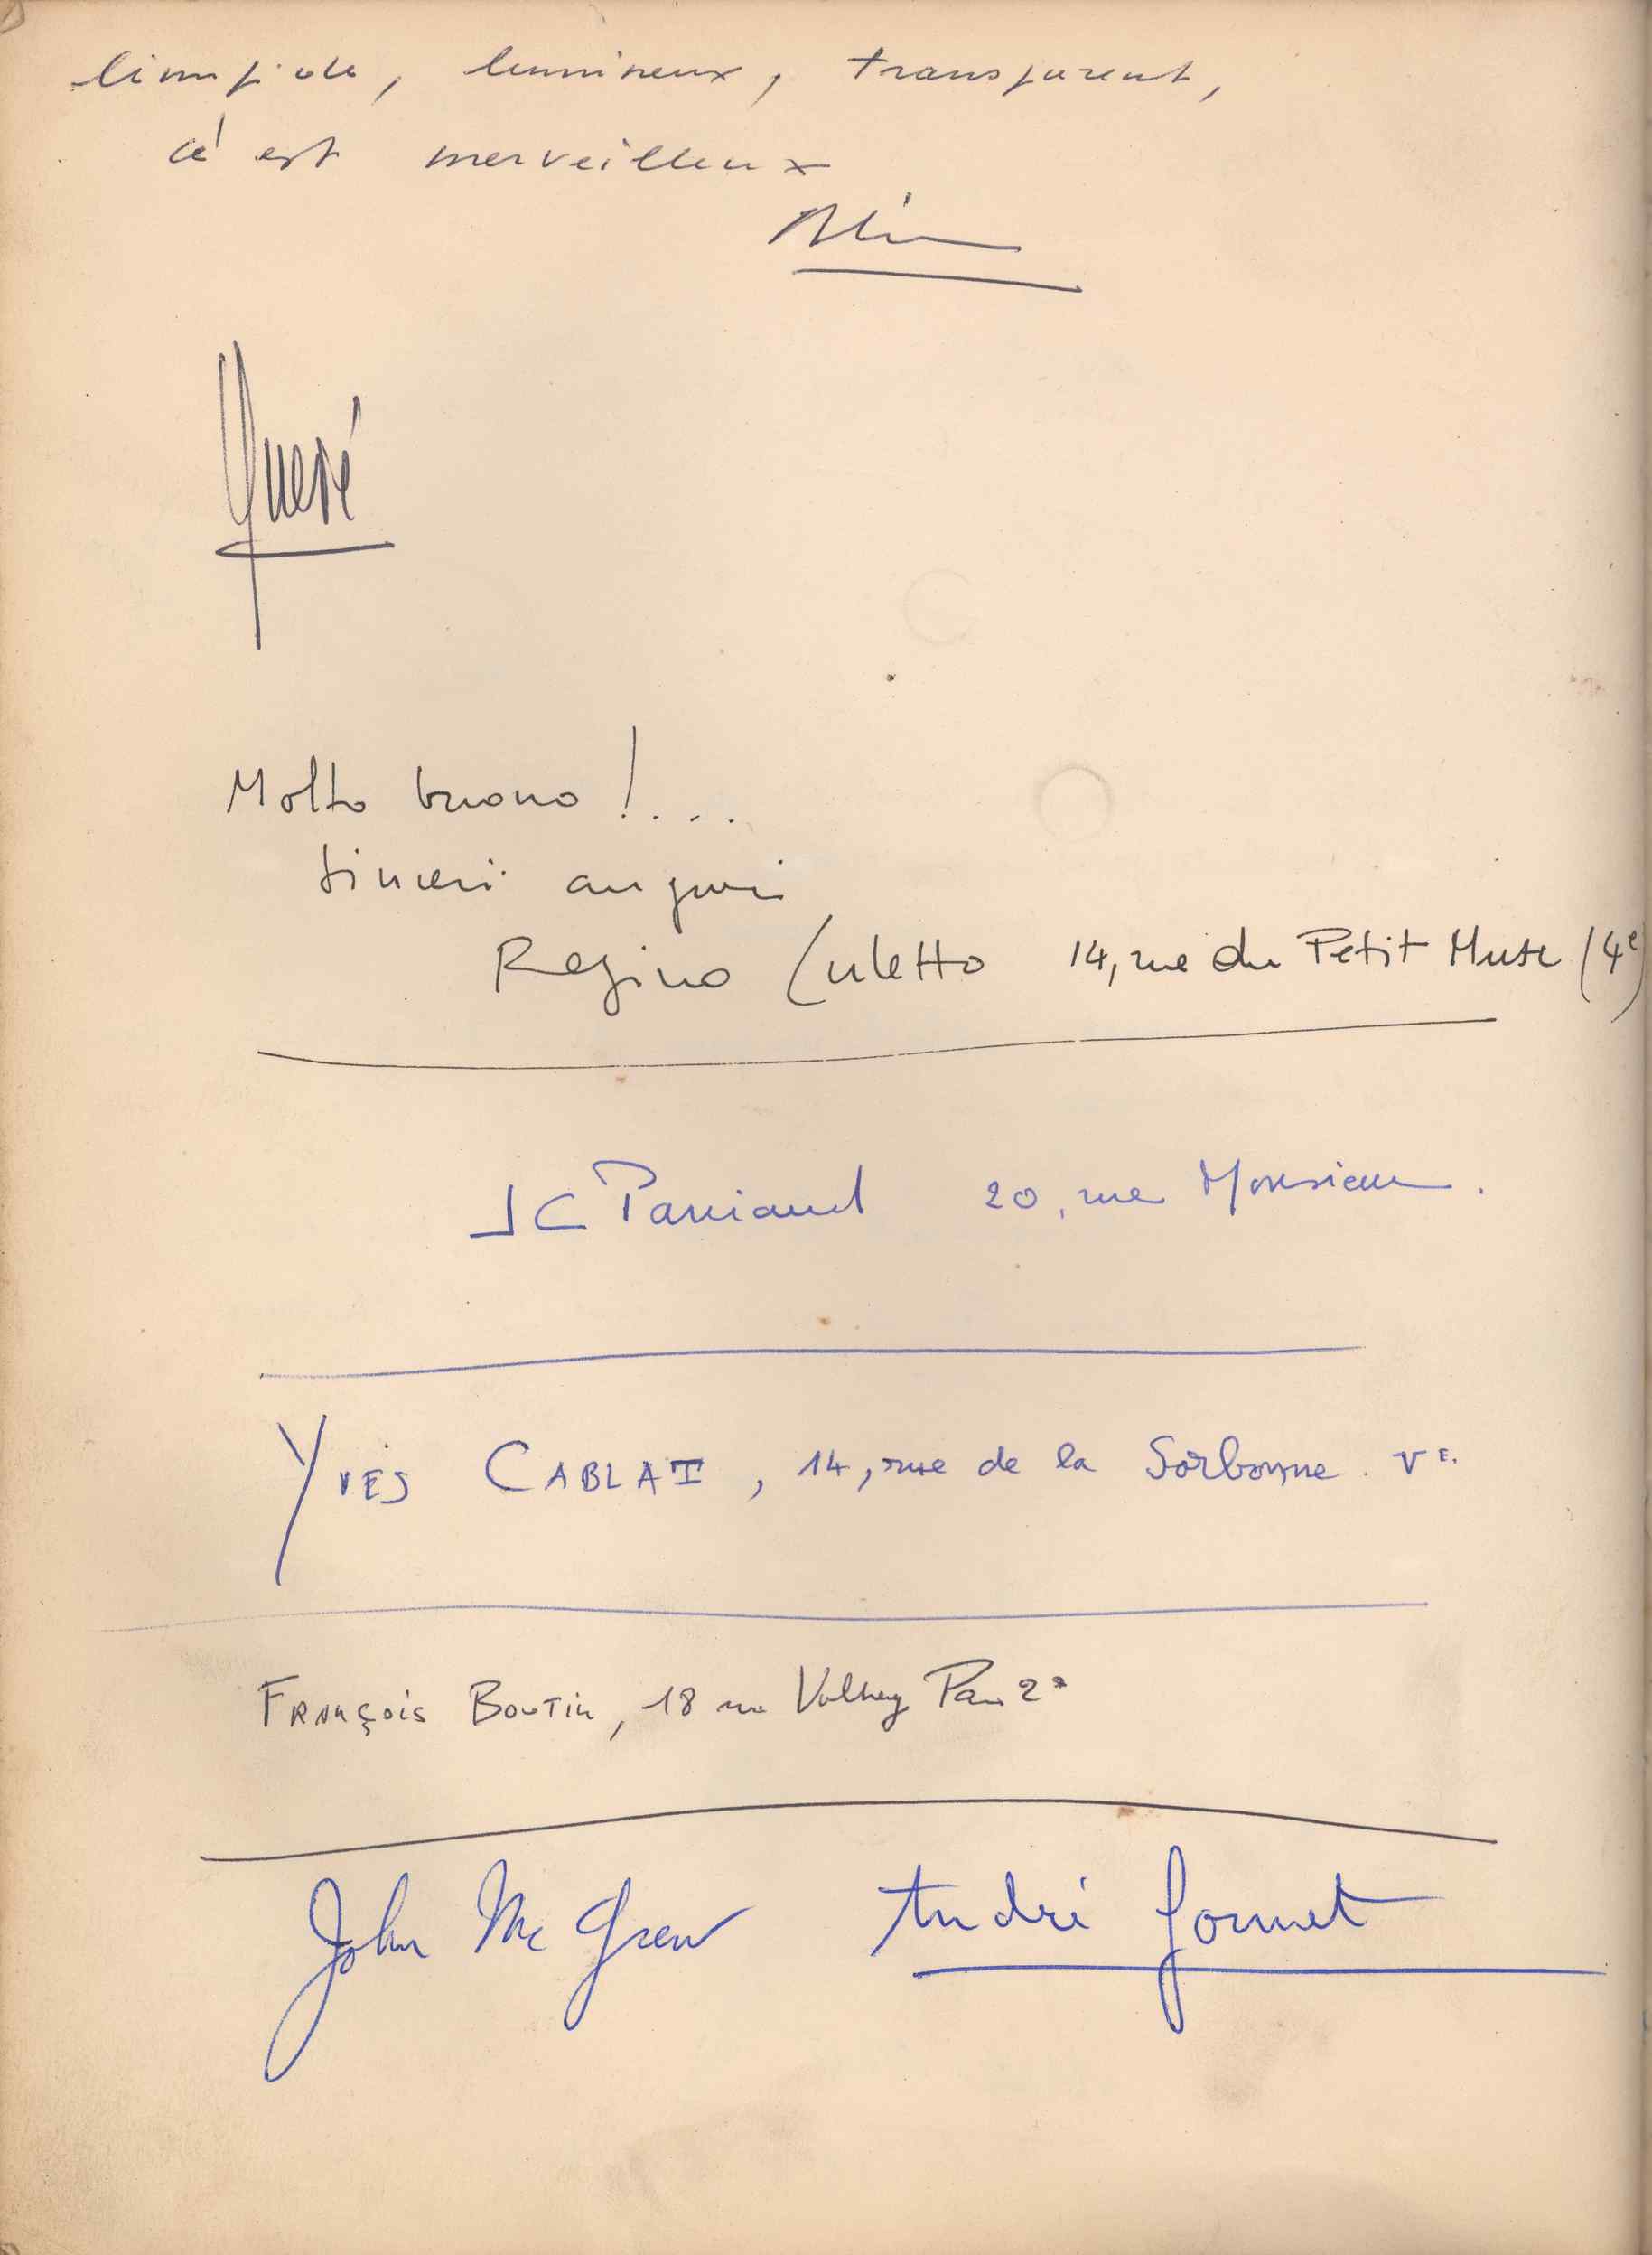 limpide, lumineux, transparent,
c'est merveilleux
Queré
Molto buono !....
sinceri auguri
Regino Culetto 14, rue du Petit Musc (4e)
JC 20, rue Monsieur.
YVES CABLAT, 14, rue de la Sorbonne. VE.
FRANÇOIS BOUTIN, 18 rue Volney Paris 2e
John Mc Grew André Gonnet